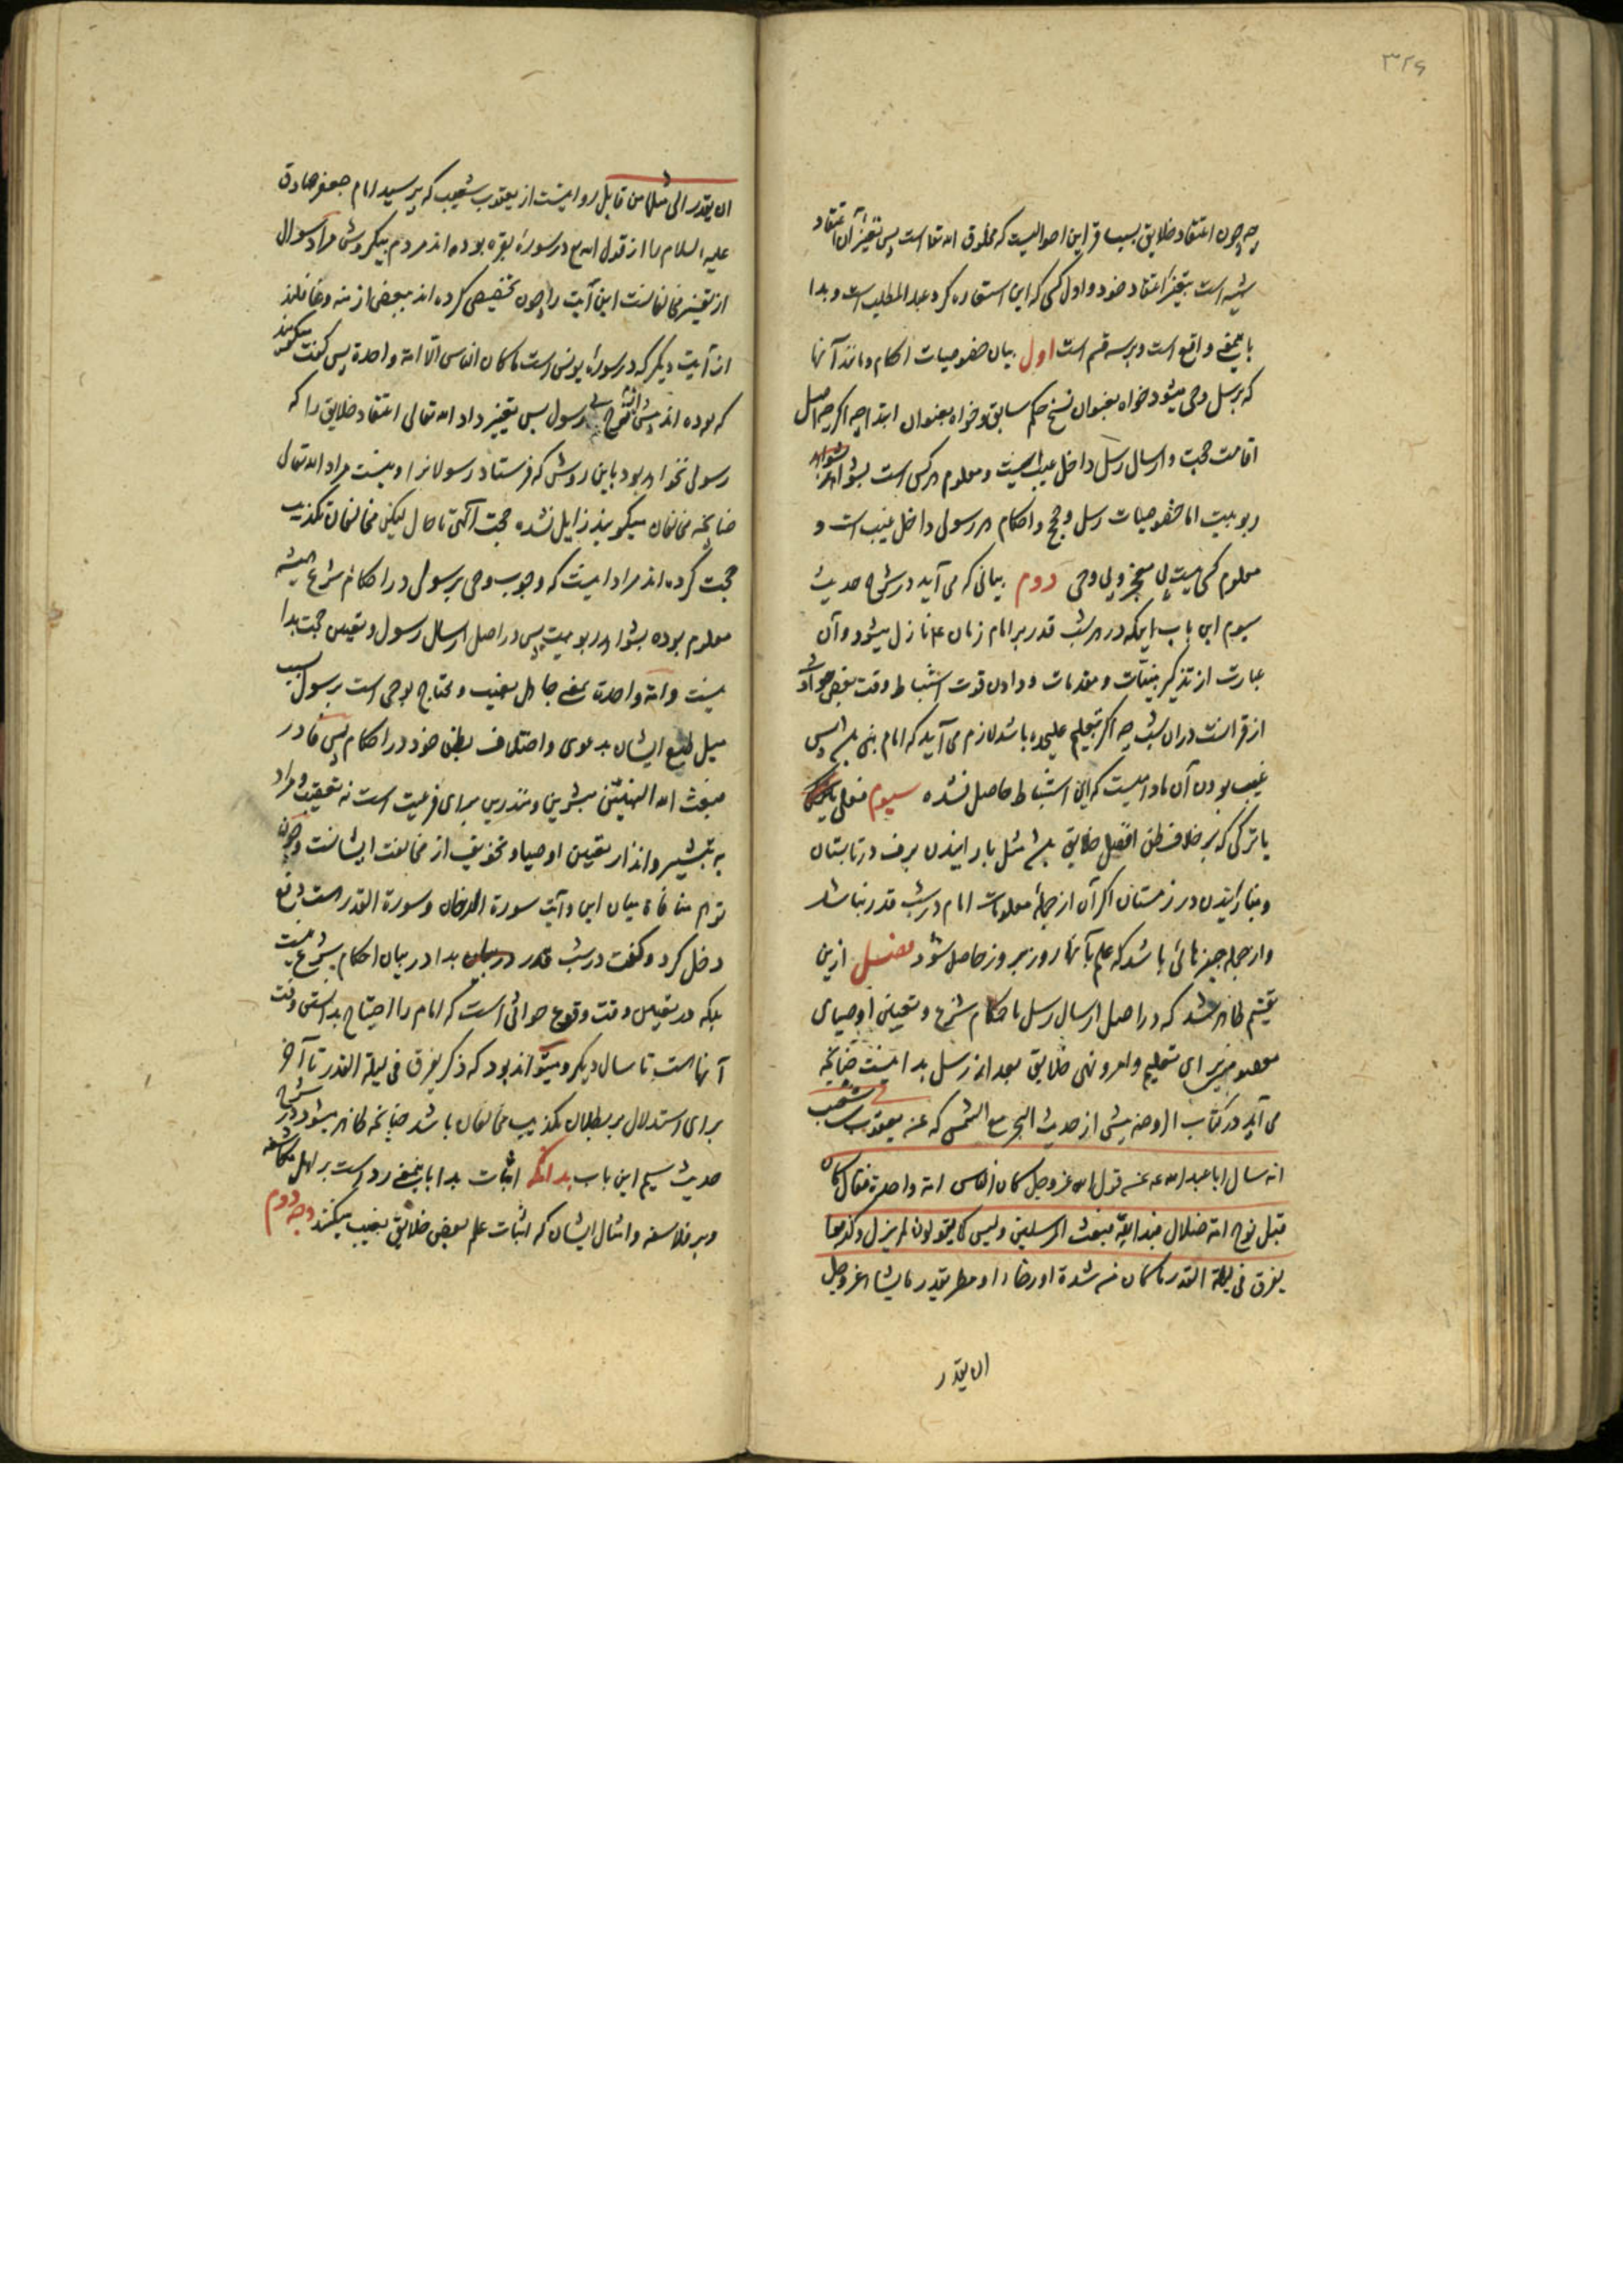 ۳۲۶
چه چون اعتقاد خلایق بسبب قراین احوالیست که مخلوق الله تعا است پس تغییر آن اعتقاد
شبیه است بتغییر اعتقاد خود و اول کسی که این استعاره کرد عبد المطلب است و بدا
باینمعنی واقع است و بر سه قسم است اول بیان خصوصیات احکام و مانند آنها
که برسل وحی میشود خواه بعنوان نسخ حکم سابق و خواه بعنوان ابتدا چه اگر چه اصل
اقامت حجت و ارسال رسل داخل غیب نیست و معلوم هر کس است بشواهد
ربوبیت اما خصوصیات رسل و حجج و احکام هر رسولی داخل غیب است و
معلوم کسی نیست بی معجز و بی وحی دوم بیانی که می آید در شرح حدیث
سیوم این باب اینکه در هر شب قدر بر امام زمان ع نازل میشود و آن
عبارت از تذکیر بینات و مقدمات و دادن قوت استنباط وقت بعض حوادث
از قرانست در ان شب چه اگر تعلیم علیحده باشد لازم می آید که امام نبی باشد پس
غیب بودن آن مادامیست که این استنباط حاصل نشده سیوم فعلی
یا ترکی که بر خلاف ظن افضل خلایق باشد مثل بارانیدن برف در تابستان
و نبارانیدن در زمستان اگر آن از جمله معلومات امام در شب قدر نباشد
و از جمله چیزهائی باشد که علم بآنها روز بروز حاصل شود مفصل ازین
تقسیم ظاهر شد که در اصل ارسال رسل با احکام شرع و تعیین اوصیای
معصومین برای تعلیم و امر و نهی خلایق بعد از رسل بدا نیست چنانچه
می آید در کتاب الروضه پیش از حدیث البحر مع الشمس که عن یعقوب بن شعیب
انه سال ابا عبد الله عه عن قول الله عز و جل کان الناس امة واحدة فقال کان
قبل نوح امة ضلال فبدا لله فبعث المرسلین و لیس کما یقولون لم یزل و کذبوا
یفرق فی لیلة القدر ما کان من شدة او رخاء او مطر بقدر ما یشاء عز و جل
ان یقدر
ان یقدر الی مثلها من قابل روایتست از یعقوب شعیب که پرسید امام جعفر صادق
علیه السلام را از قول الله تع در سوره بقره بوده اند مردم بیکروش مراد سوال
از تفسیر مخالفانست این آیت را چون تخصیص کرده اند ببعض ازمنه و غافلند
از آیت دیگر که در سوره یونس است ما کان الناس الا امة واحدة پس گفت میگویند
که بوده اند پیش نوح بی رسول پس تغییر داد الله تعالی اعتقاد خلایق را که
رسولی نخواهد بود باین روش که فرستاد رسولانرا و نیست مراد الله تعالی
چنانچه مخالفان میگویند زایل نشده حجت آلهی تا حال لیکن مخالفان تکذیب
حجت کرده اند مراد اینست که وجوب وحی برسول در احکام شرع همیشه
معلوم بوده بشواهد ربوبیت پس در اصل ارسال رسول و تعیین حجت بدا
نیست و امة واحدة بمعنی جاهل بغیب و محتاج بوحی است برسول بسبب
میل طبع ایشان بدعوی و اختلاف بظن خود در احکام پس فا در
فبعث الله النبیین مبشرین و منذرین برای فرعیت است نه تعقیب و مراد
به تبشیر و انذار تعیین اوصیا و تخویف از مخالفت ایشانست و چون
توهم منافاة میان این و آیت سورة الدخان و سورة القدر هست دفع
دخل کرد و گفت در شب قدر بدا در بیان احکام شرع نیست
بلکه در تعیین وقت وقوع حوائی است که امام را احتیاج بدانستن وقت
آنها هست تا سال دیگر و میتواند بود که ذکر یفرق فی لیلة القدر تا آخر
برای استدلال بر بطلان تکذیب مخالفان باشد چنانچه ظاهر میشود در شرح
حدیث سیم این باب بدانکه اثبات بدا باینمعنی رد است بر اهل مکاشفه
و بر فلاسفه و امثال ایشان که اثبات علم بعض خلایق بغیب میکنند وجه دوم